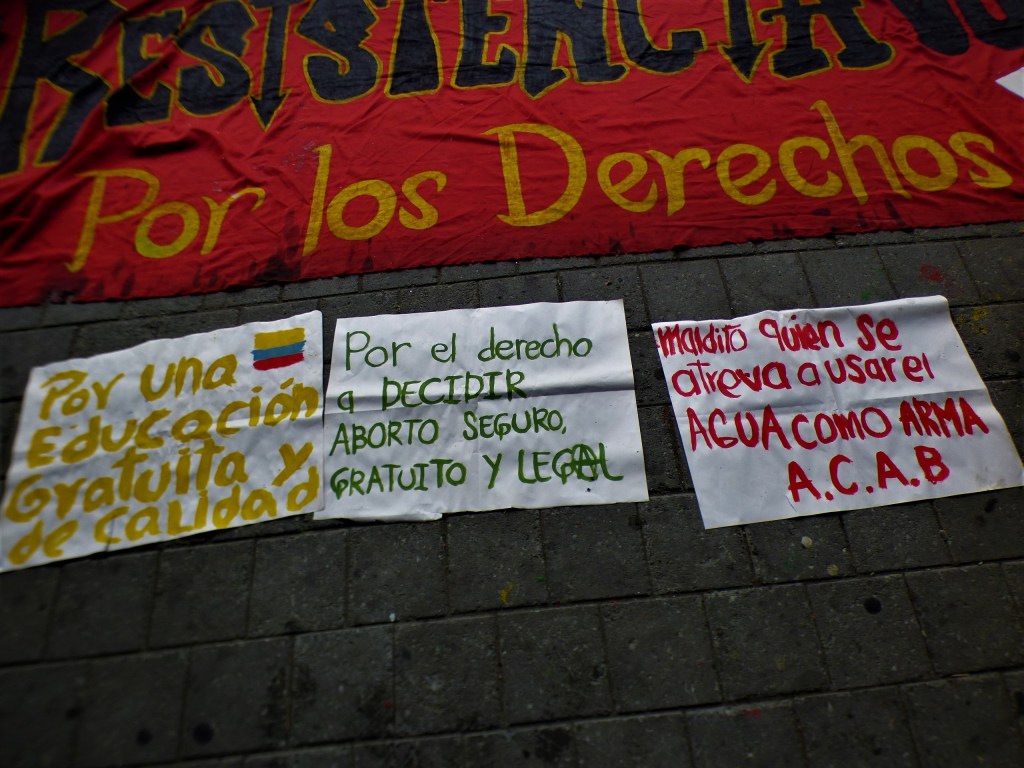 RESISTENCIA
Por los Derechos
Por una
Educación
Gratuita y
de calidad
Por el derecho
a DECIDIR
ABORTO SEGURO,
GRATUITO Y LEGAL
Maldito quien se
atreva a usar el
AGUA COMO ARMA
A.C.A.B